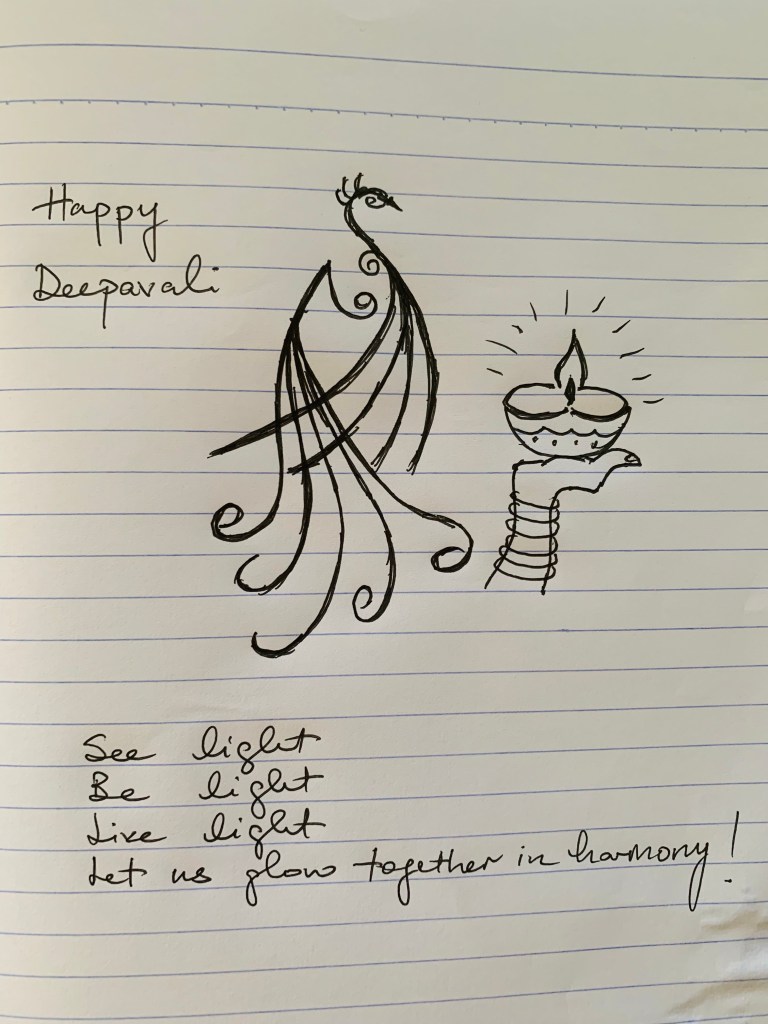 Happy
Deepavali
See light
Be light
Live light
Let us glow together in harmony!